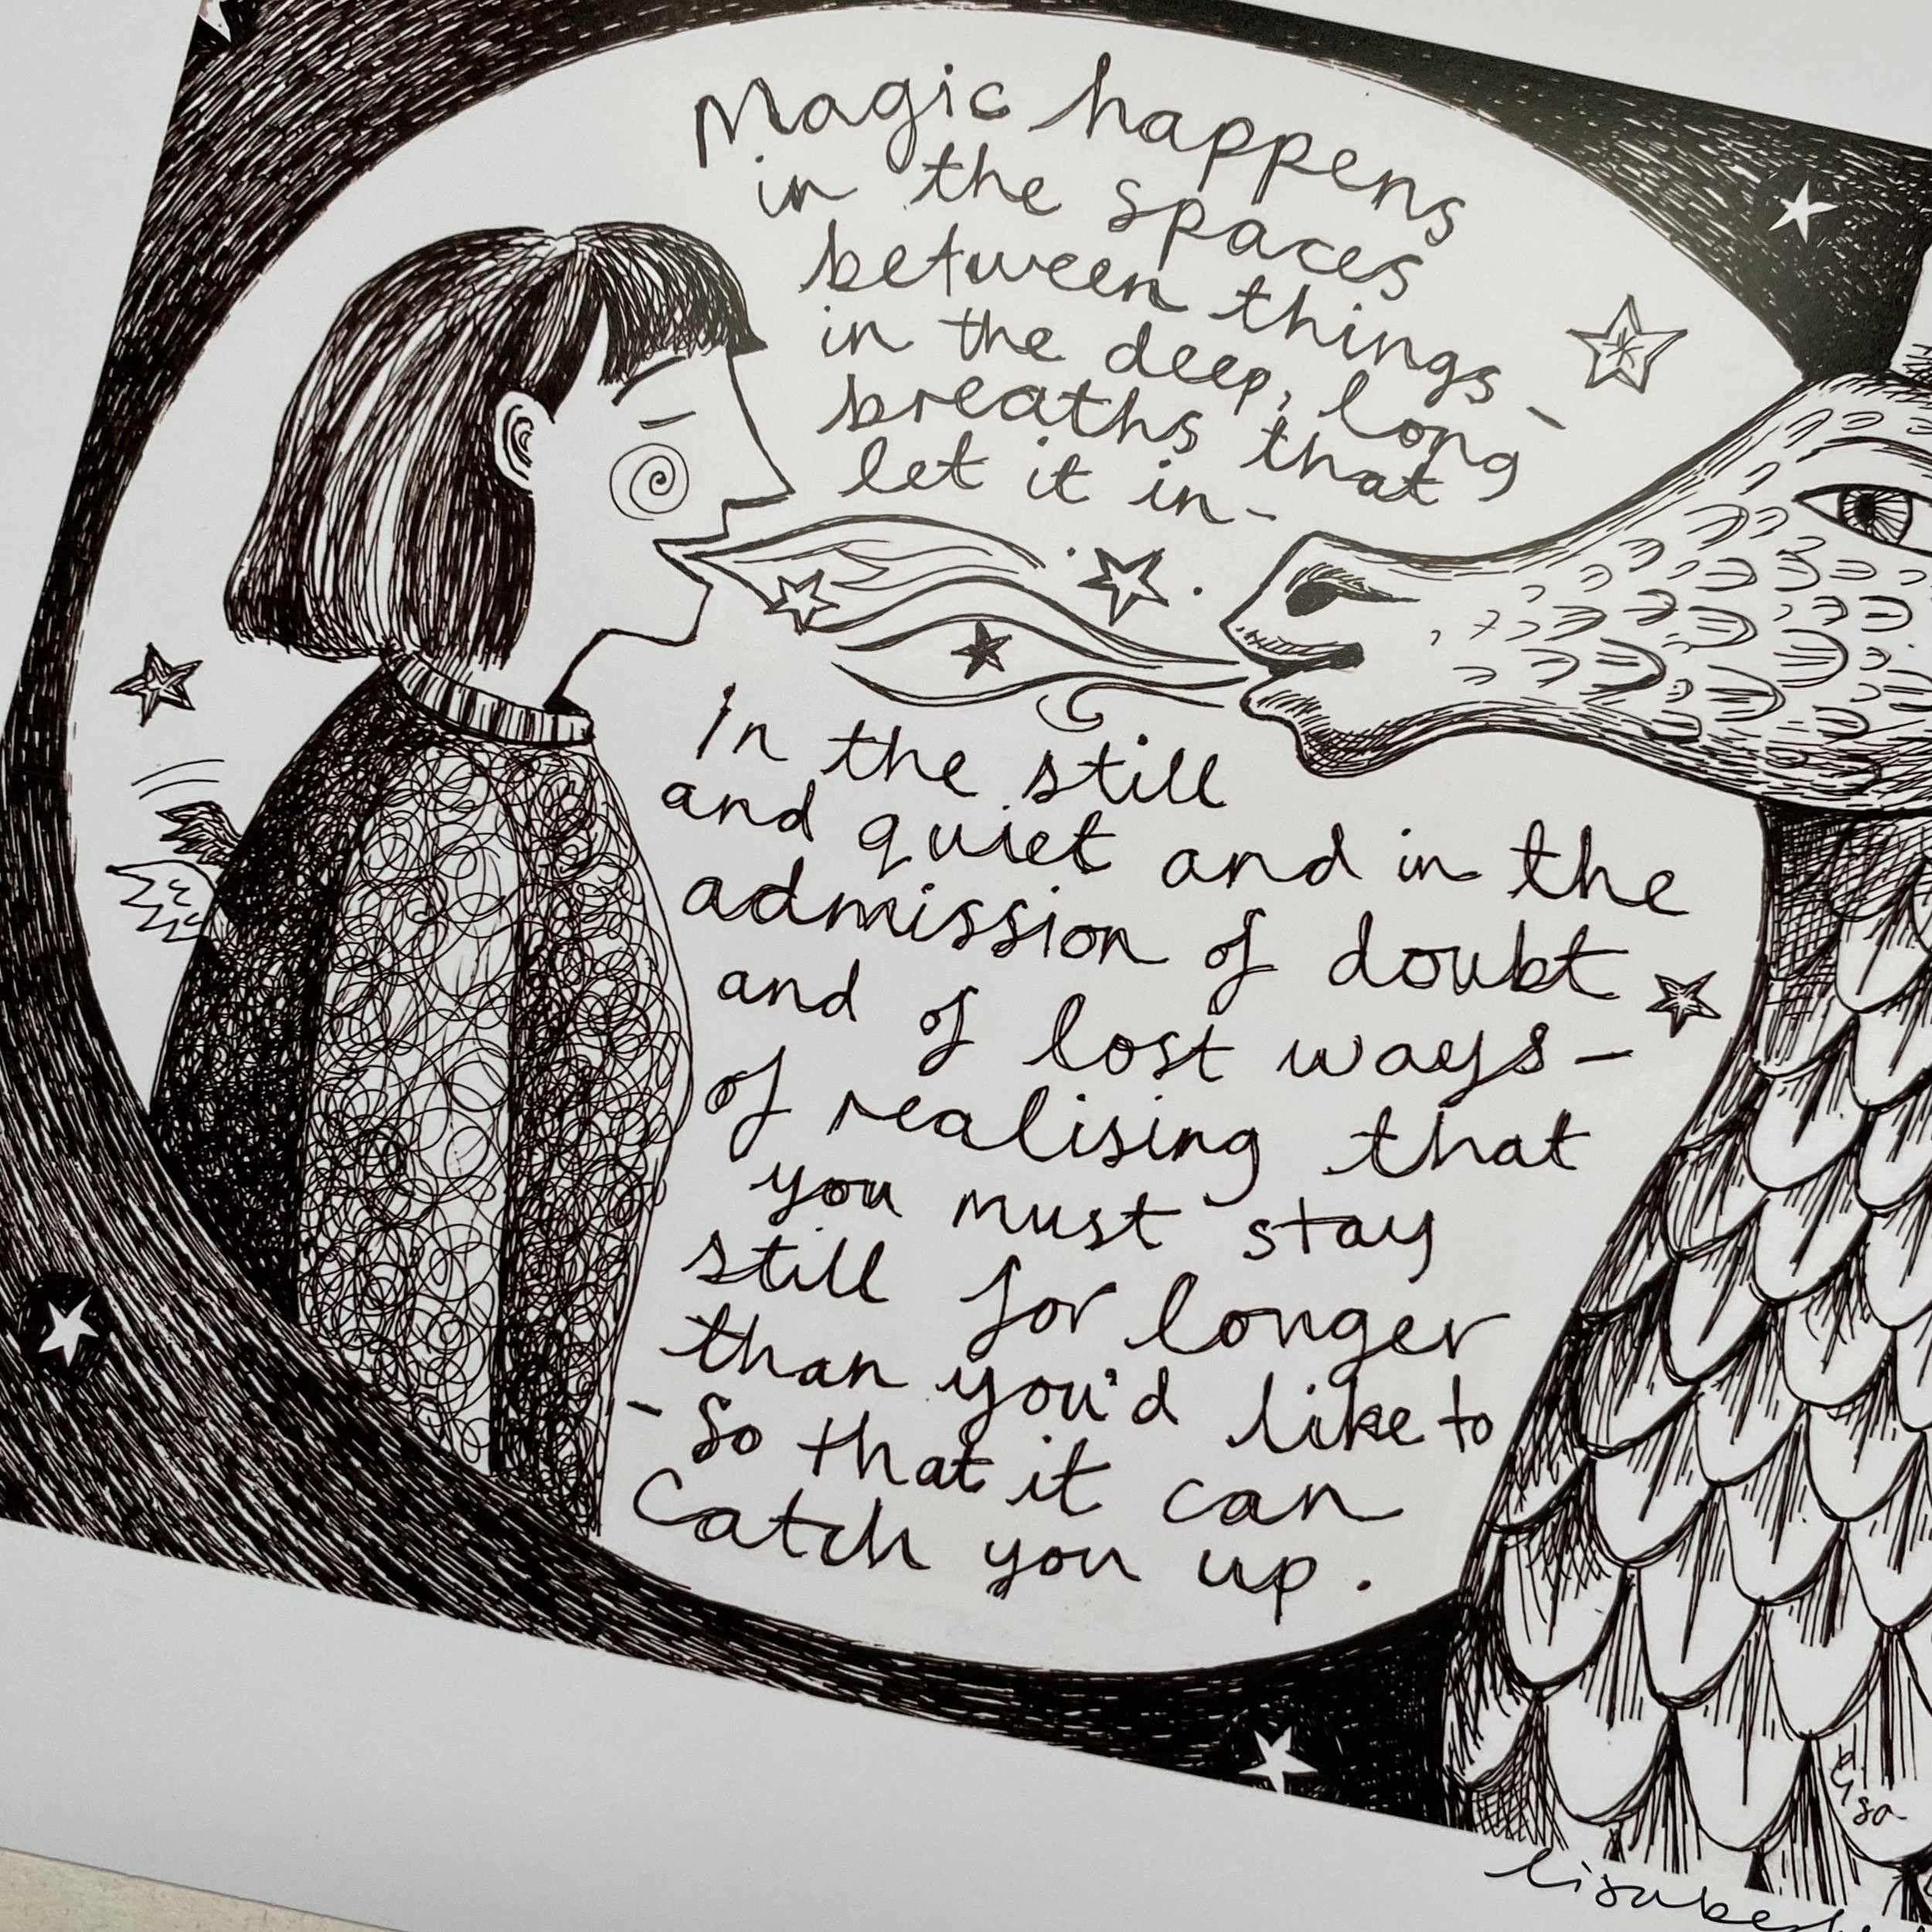 Magic happens
in the spaces
between things -
in the deep, long
breaths that
let it in -
In the still
and quiet and in the
admission of doubt
and of lost ways -
of realising that
you must stay
still for longer
than you'd like to
- So that it can
Catch you up.